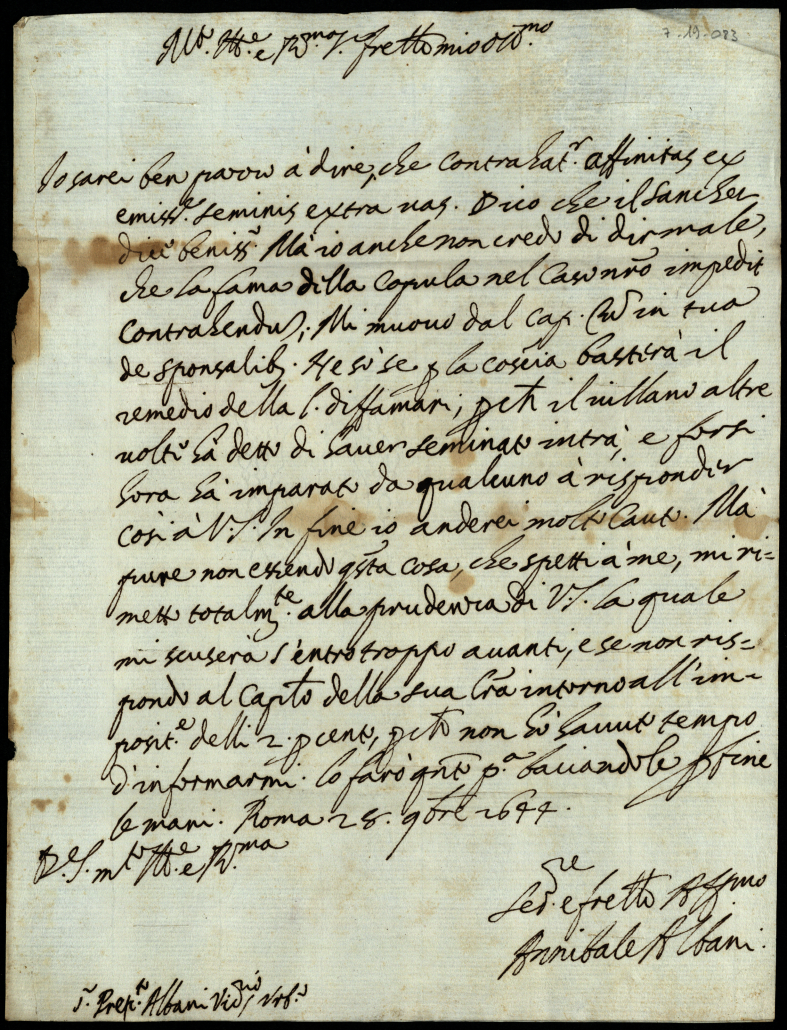 7-19-083
Mto. Ill.e e R.mo S.r fretto mio oss.mo
Io sarei ben pazzo à dire, che contrahat.r affinitas ex
emiss.e seminis extra vas. Dico che il Sanchez
dice beniss.o Mà io anche non credo di dir male,
che la fama della copula nel caso nrõ impedit
contrahendũ; Mi muovo dal cap. in tua
de sponsalib. Ne sò se p la coscia basterà il
remedio della l. diffamari; pchè il villano altre
volte hà detto di haver seminato intrà, e forsi
hora hà imparato da qualcuno à risponder
così à V.S. In fine io anderei molto cauto. Mà
pure non essendo qsta cosa, che spetti à me, mi ri=
metto totalm.te alla prudenza di V.S. la quale
mi scuserà s'entro troppo avanti, e se non ris=
pondo al Capitõ della sua lrã intorno all'im=
posit.e delli 2. p cento, pchè non hò havuto tempo
d'informarmi. lo farò qnto p.a baciandole p fine
le mani. Roma 28. 9bre 1644.
D. V.S. mto Ill.e e R.ma
Ser.re e fretto Aff.mo
Annibale Albani.
S.r Prep.to Albani Vic.rio Urb.o